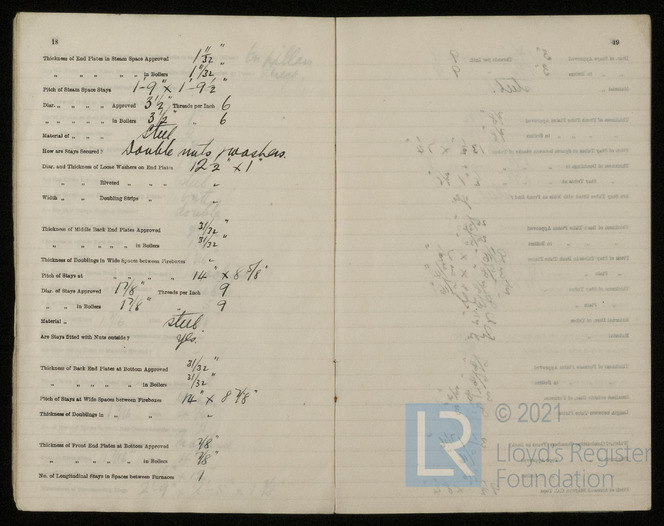 18
Thickness of End Plates in Steam Space Approved 1 1/32"
" " " " " in Boilers 1 1/32"
Pitch of Steam Space Stays 1'-9" x 1'-9½"
Diar. " " " " Approved 3½" Threads per Inch 6
" " " " in Boilers 3½" " 6
Material of " " " Steel
How are Stays Secured? Double nuts & washers.
Diar. and Thickness of Loose Washers on End Plates 12½" x 1"
" " Riveted " " " "
Width " " Doubling Strips " "
Thickness of Middle Back End Plates Approved 31/32"
" " " " " in Boilers 31/32"
Thickness of Doublings in Wide Spaces between Fireboxes "
Pitch of Stays at " " " " 14" x 8 5/8"
Diar. of Stays Approved 1 7/8" Threads per Inch 9
" " in Boilers 1 7/8" " 9
Material " steel.
Are Stays fitted with Nuts outside? Yes.
Thickness of Back End Plates at Bottom Approved 31/32"
" " " " " in Boilers 31/32"
Pitch of Stays at Wide Spaces between Fireboxes 14" x 8 7/8"
Thickness of Doublings in " " "
Thickness of Front End Plates at Bottom Approved 7/8"
" " " " " in Boilers 7/8"
No. of Longitudinal Stays in Spaces between Furnaces 1
19
LR © 2021
Lloyd's Register
Foundation